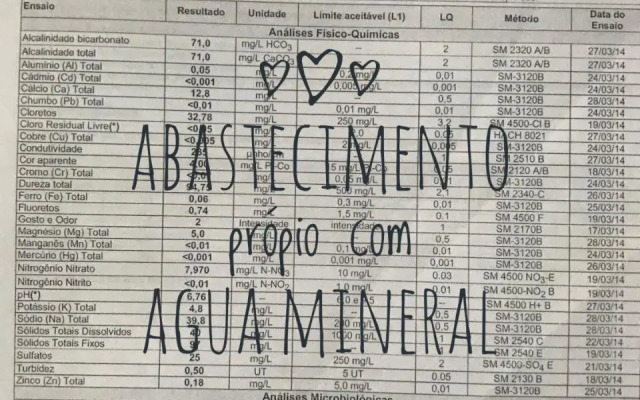 Ensaio Resultado Unidade Limite aceitável (L1) LQ Método Data do Ensaio
Análises Físico-Químicas
Alcalinidade bicarbonato 71,0 mg/L HCO3 -- 2 SM 2320 A/B 27/03/14
Alcalinidade total 71,0 mg/L CaCO3 -- 2 SM 2320 A/B 27/03/14
Alumínio (Al) Total 0,05 mg/L 0,2 mg/L 0,01 SM-3120B 24/03/14
Cádmio (Cd) Total <0,001 mg/L 0,005 mg/L 0,001 SM-3120B 24/03/14
Cálcio (Ca) Total 12,8 mg/L -- 0,5 SM-3120B 28/03/14
Chumbo (Pb) Total <0,01 mg/L 0,01 mg/L 0,01 SM-3120B 24/03/14
Cloretos 32,78 mg/L 250 mg/L 3,2 SM 4500-Cl B 19/03/14
Cloro Residual Livre(*) 0,05 HACH 8021 27/03/14
Cobre (Cu) Total mg/L 0,005 SM-3120B 24/03/14
Condutividade 1 SM 2510 B 27/03/14
Cor aparente SM 2120 A/B 18/03/14
Cromo (Cr) Total 0,05 mg/L SM-3120B 24/03/14
Dureza total 94,75 mg/L 500 mg/L 2,1 SM 2340-C 26/03/14
Ferro (Fe) Total 0,06 mg/L 0,3 mg/L 0,01 SM-3120B 25/03/14
Fluoretos 0,74 mg/L 1,5 mg/L 0,1 SM 4500 F 19/03/14
Gosto e Odor 2 Intensidade Intensidade 1 SM 2170B 17/03/14
Magnésio (Mg) Total 5,0 mg/L 0,5 SM-3120B 28/03/14
Manganês (Mn) Total <0,01 mg/L 0,1 mg/L 0,01 SM-3120B 24/03/14
Mercúrio (Hg) Total <0,001 mg/L 0,001 mg/L 0,001 SM-3120B 26/03/14
Nitrogênio Nitrato 7,970 mg/L N-NO3 10 mg/L 0.03 SM 4500 NO3-E 19/03/14
Nitrogênio Nitrito <0,01 mg/L N-NO2 1,0 mg/L 0,01 SM 4500-NO2 B 19/03/14
pH(*) 6,76 -- -- SM 4500 H+ B 27/03/14
Potássio (K) Total 4,8 mg/L 0,5 SM-3120B 28/03/14
Sódio (Na) Total 39,8 mg/L 200 mg/L 0,5 SM-3120B 28/03/14
Sólidos Totais Dissolvidos mg/L 1000 mg/L 1 SM 2540 C 22/03/14
Sólidos Totais Fixos mg/L SM 2540 E 19/03/14
Sulfatos 25 mg/L 250 mg/L 2 SM 4500-SO4 E 21/03/14
Turbidez 0,50 UT 5 UT 0.05 SM 2130 B 18/03/14
Zinco (Zn) Total 0,18 mg/L 5,0 mg/L 0,01 SM-3120B 25/03/14
Análises Microbiológicas
ABASTECIMENTO
própio com
AGUA MINERAL